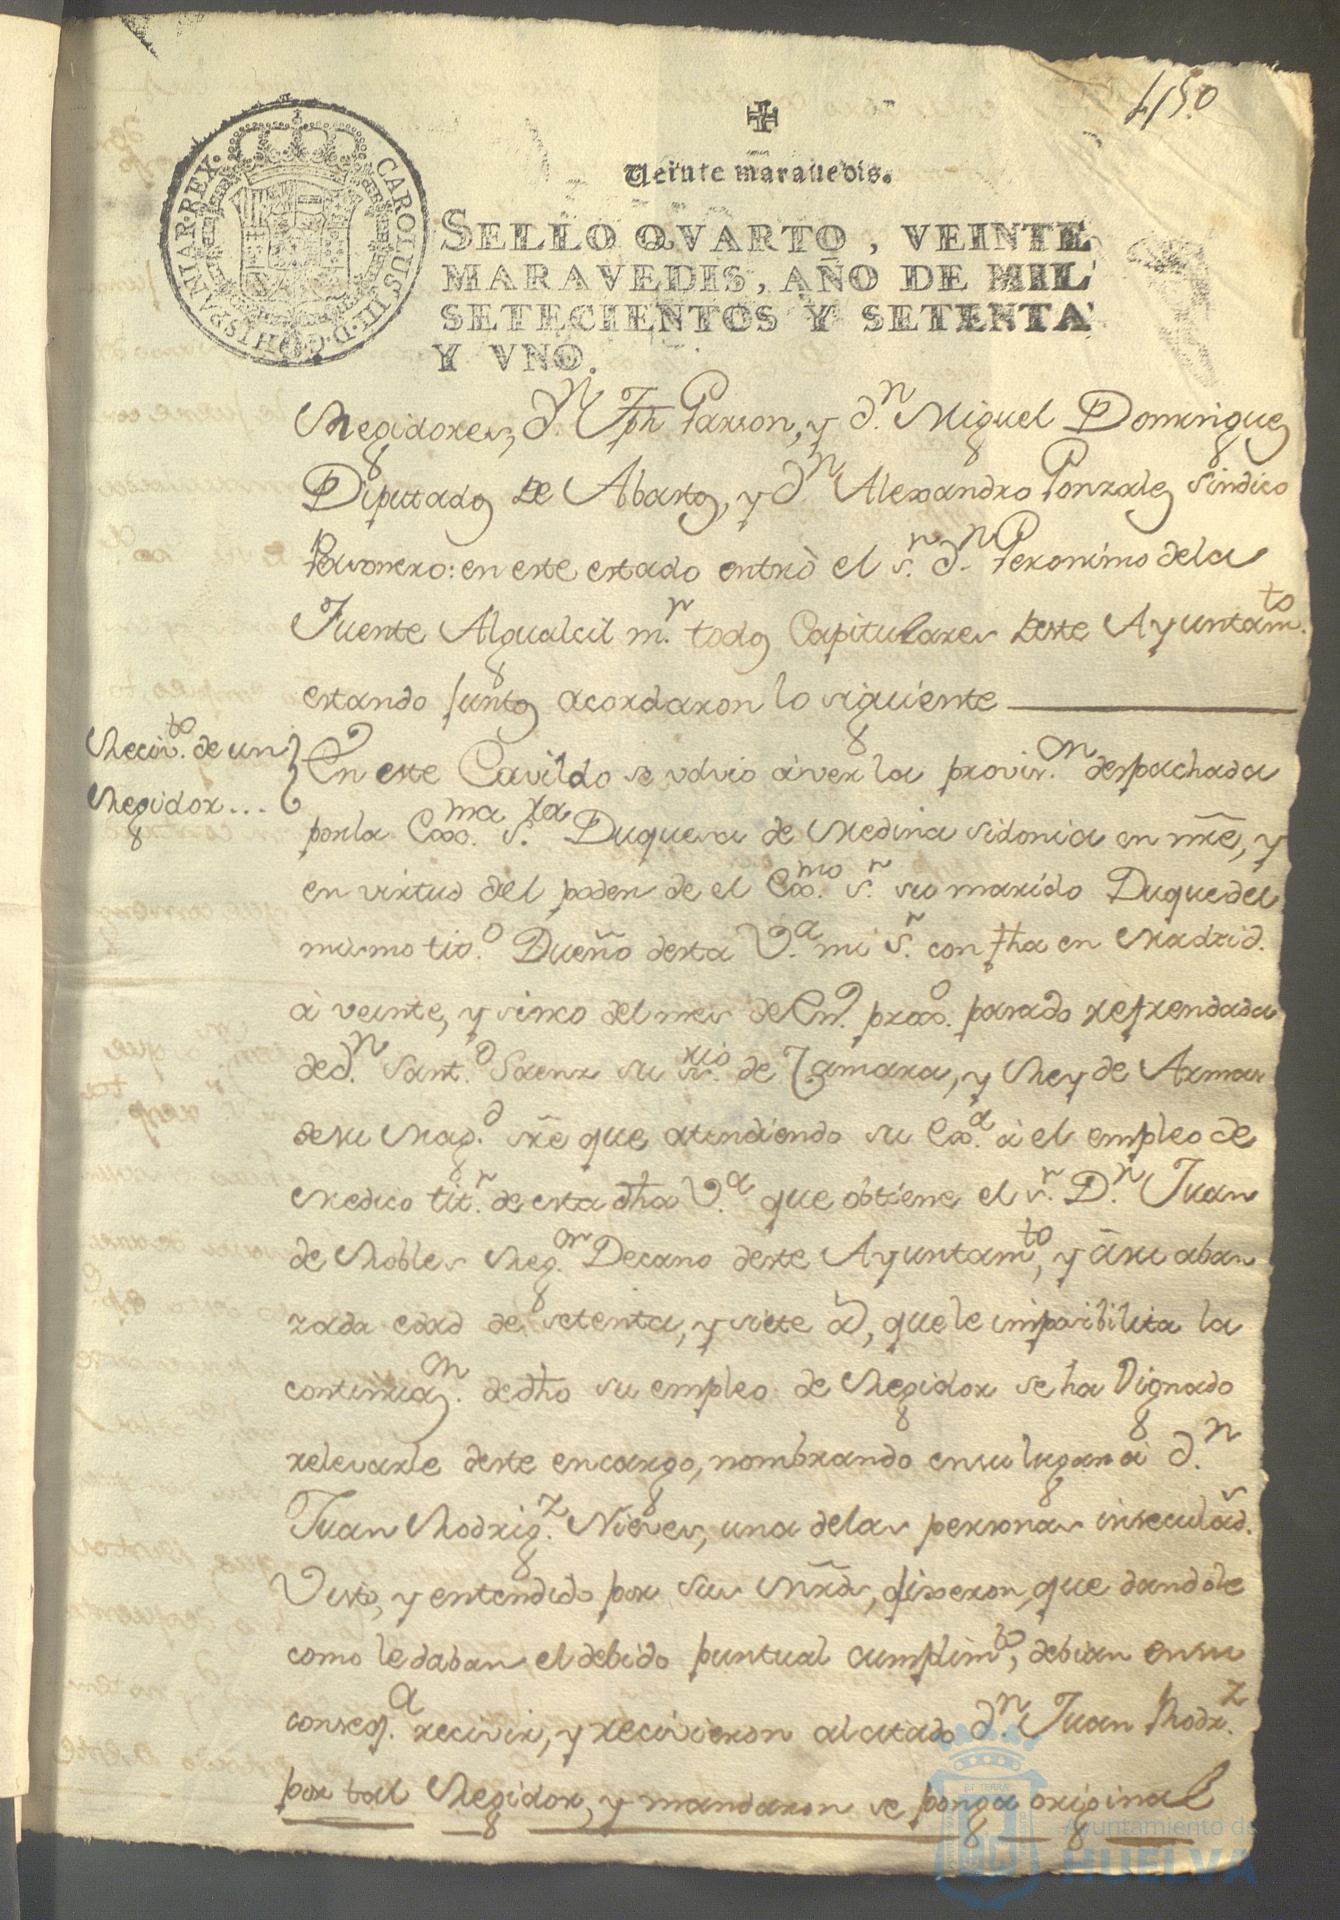 450
Veinte maravedis.
SELLO QVARTO, VEINTE
MARAVEDIS, AÑO DE MIL
SETECIENTOS Y SETENTA
Y VNO.
CAROLUS III D G HISPANIAR REX
Regidores, Dn. Jph Garson, y Dn. Miguel Dominguez
Diputados de Abastos, y Dn. Alexandro Gonzales Sindico
Personero: en este estado entrò el sr. Dn. Geronimo dela
Fuente Alguacil mr. todos Capitulares deste Ayuntamto.
estando juntos acordaron lo siguiente
Recivto. de un
Regidor...
En este Cavildo se volvio à ver la provisn. despachada
por la Exma. Sra. Duquesa de Medina Sidonia en nre, y
en virtud del poder de el Exmo. sr. su marido Duque del
mismo tito. Dueño desta Va. mi Sr. con fha en Madrid.
à veinte, y sinco del mes de Eno. proxo. pasado refrendada
de Dn. Santo. Saenz su srio. de Camara, y Rey de Armas
de su Magd. sre que atendiendo su Exa. à el empleo de
Medico titr. de esta dha Va. que obtiene el sr. Dn. Juan
de Robles Regon. Decano deste Ayuntamto, y à su aban
zada edad de setenta, y siete as, que le imposibilita la
continuan. de dho su empleo de Regidor se ha Dignado
relevarle deste encargo, nombrando en su lugar à Dn.
Juan Rodrigz. Nieves, una delas personas inseculads.
Visto, y entendido por sus mrds, dixeron, que dandole
como le daban el debido puntual cumplimto, debian en su
conseqa. recivir, y recivieron al citado Dn. Juan Rodrz.
por tal Regidor, y mandaron se ponga original
Ayuntamiento de
HUELVA